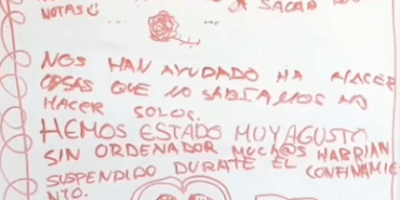 A SACAR
NOTAS
NOS HAN AYUDADO HA HACER
COSAS QUE NO SABÍAMOS NO
HACER SOLOS.
HEMOS ESTADO MUY AGUSTO
SIN ORDENADOR MUCH@S HABRIAN
SUSPENDIDO DURATE EL CONFINAMIE
NTO.